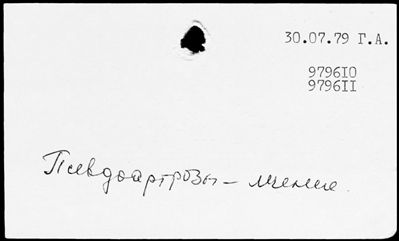 30.07.79 Г.А.
9796I0
9796II
Псевдоартрозы – лечение.